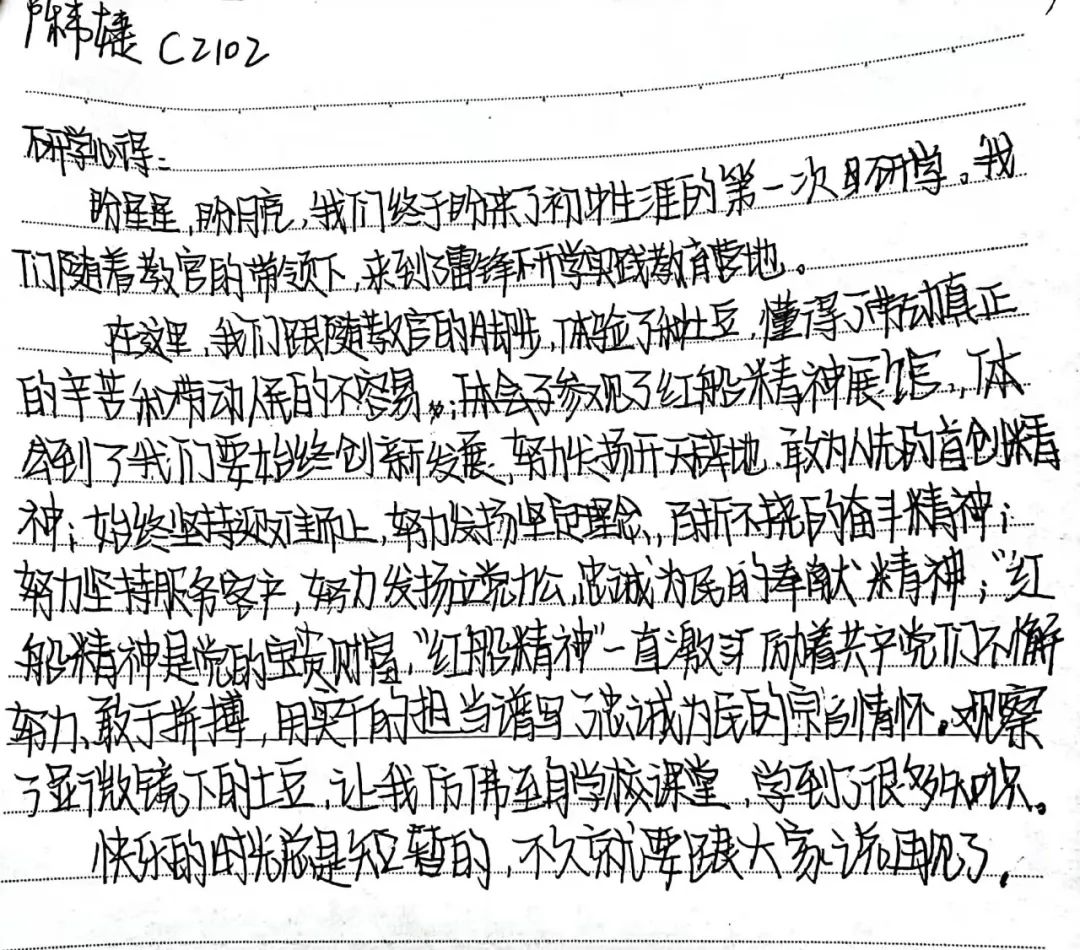 陈韦婕 C2102
研学心得:
盼星星,盼月亮,我们终于盼来了初中生涯的第一次研学。我
们随着教官的带领下,来到了雷锋研学实践教育营地。
在这里,我们跟随教官的脚步,体验了种土豆,懂得了劳动真正
的辛苦和劳动人民的不容易。;体会了参观了红船精神展馆,体
会到了我们要始终创新发展,努力发扬开天辟地、敢为人先的首创精
神;始终坚持迎难而上,努力发扬坚定理念、百折不挠的奋斗精神;
努力坚持服务客户,努力发扬立党为公、忠诚为民的奉献精神;"红
船精神是党的宝贵财富,"红船精神"一直激励着共产党们不懈
努力、敢于拼搏,用实干的担当谱写了忠诚为民的宗旨情怀。观察
了显微镜下的土豆,让我仿佛至身学校课堂,学到了很多知识。
快乐的时光总是短暂的,不久就要跟大家说再见了,